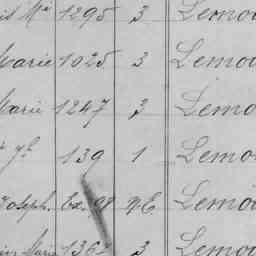 is Mie 1295 3 Lemo
Marie 1025 3 Lemo
Marie 1247 3 Lemo
139 1 Lemo
Joseph. Ex. 98 NE Lemo
Marie 1367 3 Lemo